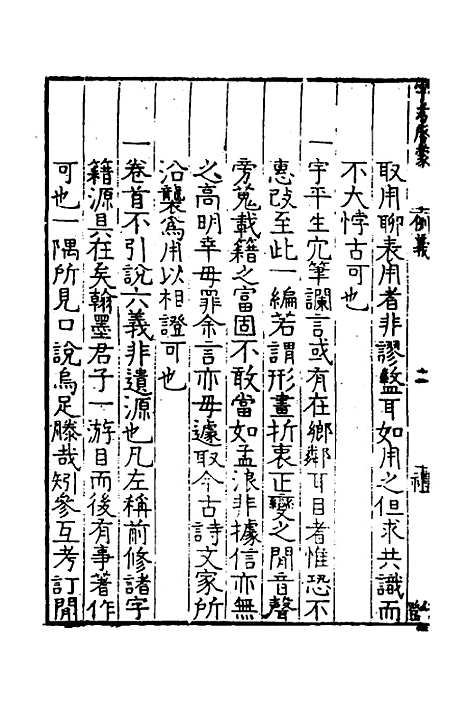 字考啓蒙 例義 二
取用聊表用者非謬盭耳如用之但求共識而
不大悖古可也
一字平生冗筆讕言或有在鄉鄰耳目者惟恐不
惠攺至此一編若謂形畫折衷正變之閒音聲
旁蒐載籍之富固不敢當如孟浪非據信亦無
之高明幸毋罪余言亦毋遽取今古詩文家所
沿襲爲用以相證可也
一卷首不引說六義非遺源也凡左稱前修諸字
籍源具在矣翰墨君子一游目而後有事著作
可也一隅所見口說烏足滕哉矧參互考訂閒